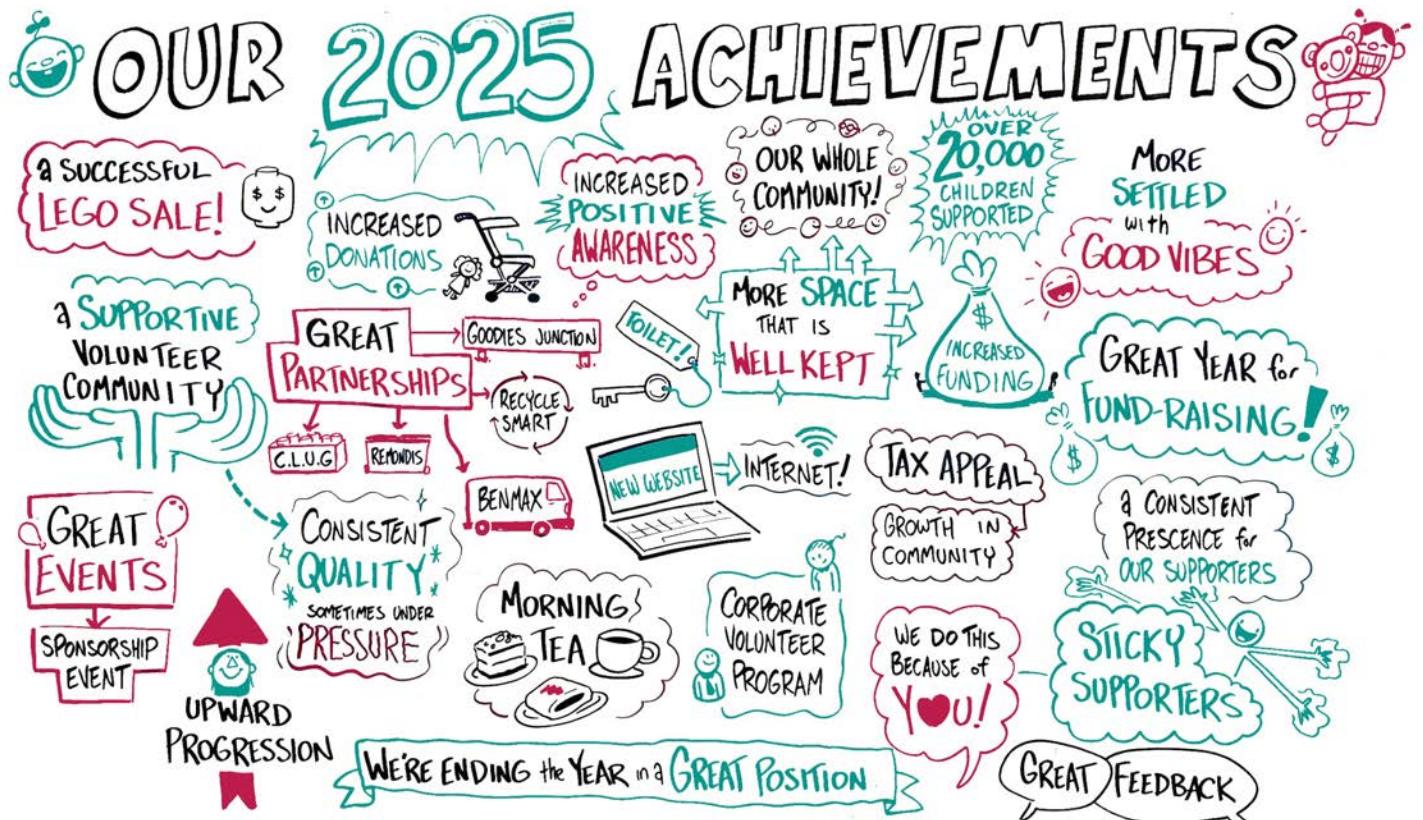 OUR 2025 ACHIEVEMENTS
a SUCCESSFUL
LEGO SALE!
$ $
INCREASED
DONATIONS
INCREASED
POSITIVE
AWARENESS
OUR WHOLE
COMMUNITY!
OVER
20,000
CHILDREN
SUPPORTED
MORE
SETTLED
with
GOOD VIBES
a SUPPORTIVE
VOLUNTEER
COMMUNITY
GREAT
PARTNERSHIPS
GOODIES JUNCTION
RECYCLE
SMART
C.L.U.G
REMONDIS
BENMAX
TOILET!
MORE SPACE
THAT IS
WELL KEPT
$
INCREASED
FUNDING
GREAT YEAR for
FUND-RAISING!
$
$
GREAT
EVENTS
SPONSORSHIP
EVENT
CONSISTENT
QUALITY
SOMETIMES UNDER
PRESSURE
NEW WEBSITE
INTERNET!
TAX APPEAL
GROWTH IN
COMMUNITY
a CONSISTENT
PRESCENCE for
OUR SUPPORTERS
UPWARD
PROGRESSION
MORNING
TEA
CORPORATE
VOLUNTEER
PROGRAM
WE DO THIS
BECAUSE of
Y♥U!
STICKY
SUPPORTERS
WE'RE ENDING the YEAR in a GREAT POSITION
GREAT FEEDBACK